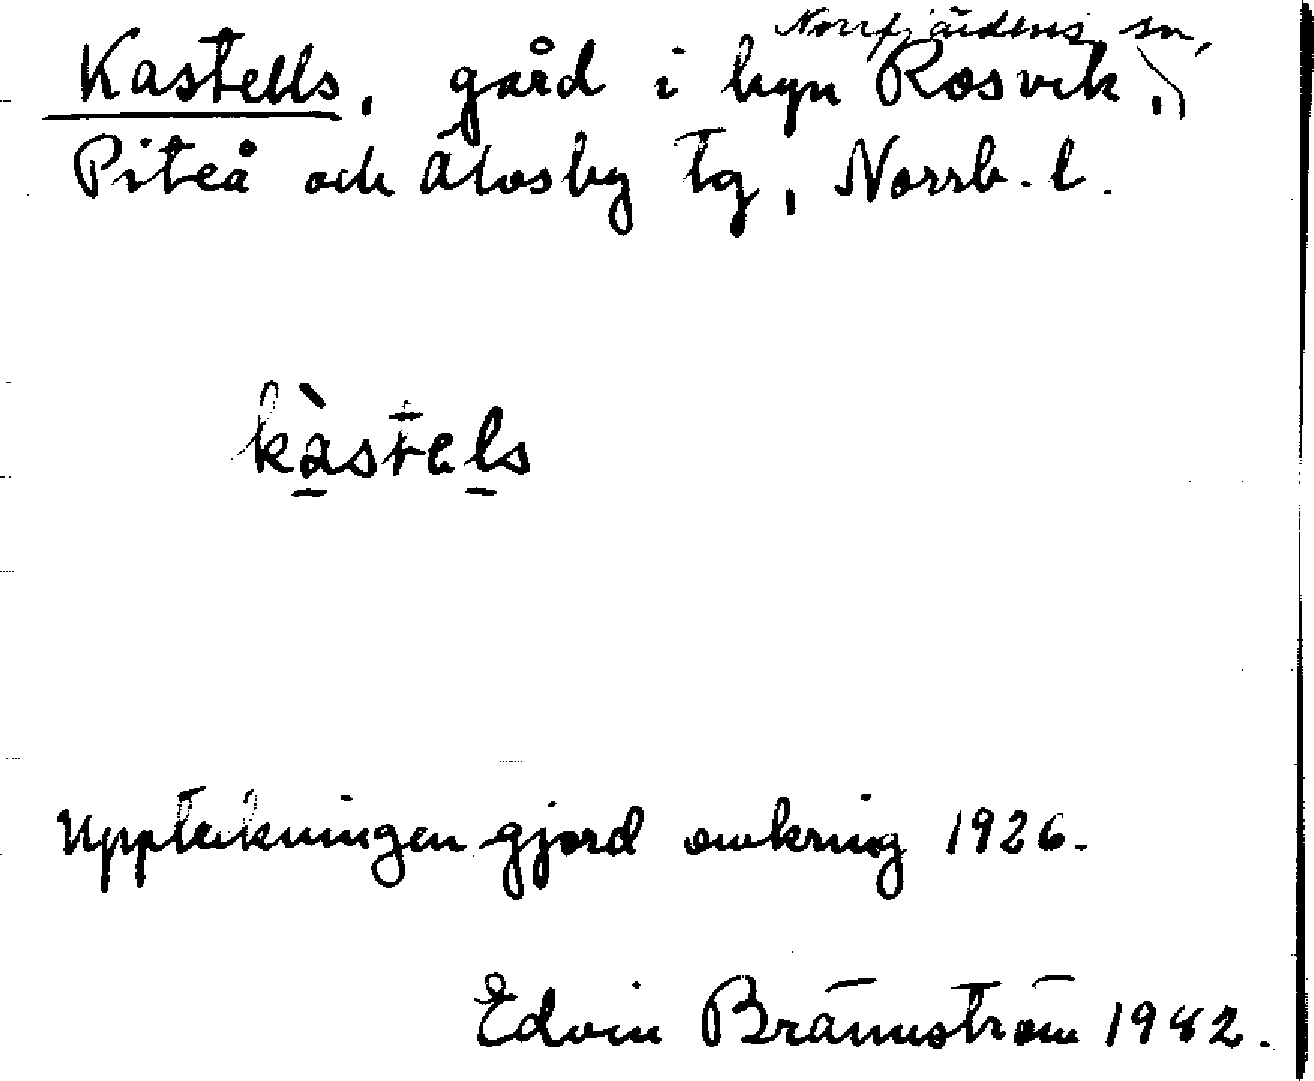 Norrfjärdens sn,
Kastells, gård i byn Rosvik,
Piteå och Älvsby tg, Norrb. l.
kàstels
Uppteckningen gjord omkring 1926.
Edvin Brännström 1942.